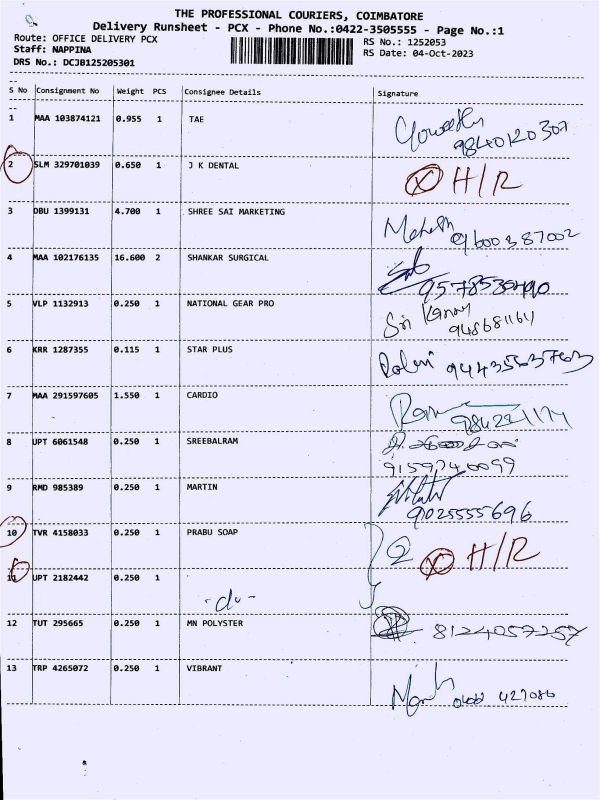 THE PROFESSIONAL COURIERS, COIMBATORE
Delivery Runsheet - PCX - Phone No.:0422-3505555 - Page No.:1
Route: OFFICE DELIVERY PCX
RS No.: 1252053
Staff: NAPPINA
RS Date: 04-Oct-2023
DRS No.: DCJB125205301
S No Consignment No Weight PCS Consignee Details Signature
1 MAA 103874121 0.955 1 TAE
9840120307
2 SLM 329701039 0.650 1 J K DENTAL X H/R
3 DBU 1399131 4.700 1 SHREE SAI MARKETING Mahesh 9600387002
4 MAA 102176135 16.600 2 SHANKAR SURGICAL
5 VLP 1132913 0.250 1 NATIONAL GEAR PRO Sri
6 KRR 1287355 0.115 1 STAR PLUS
7 MAA 291597605 1.550 1 CARDIO
8 UPT 6061548 0.250 1 SREEBALRAM
9 RMD 985389 0.250 1 MARTIN
9025555696
10 TVR 4158033 0.250 1 PRABU SOAP 2 X H/R
11 UPT 2182442 0.250 1 -do-
12 TUT 295665 0.250 1 MN POLYSTER 8124057257
13 TRP 4265072 0.250 1 VIBRANT